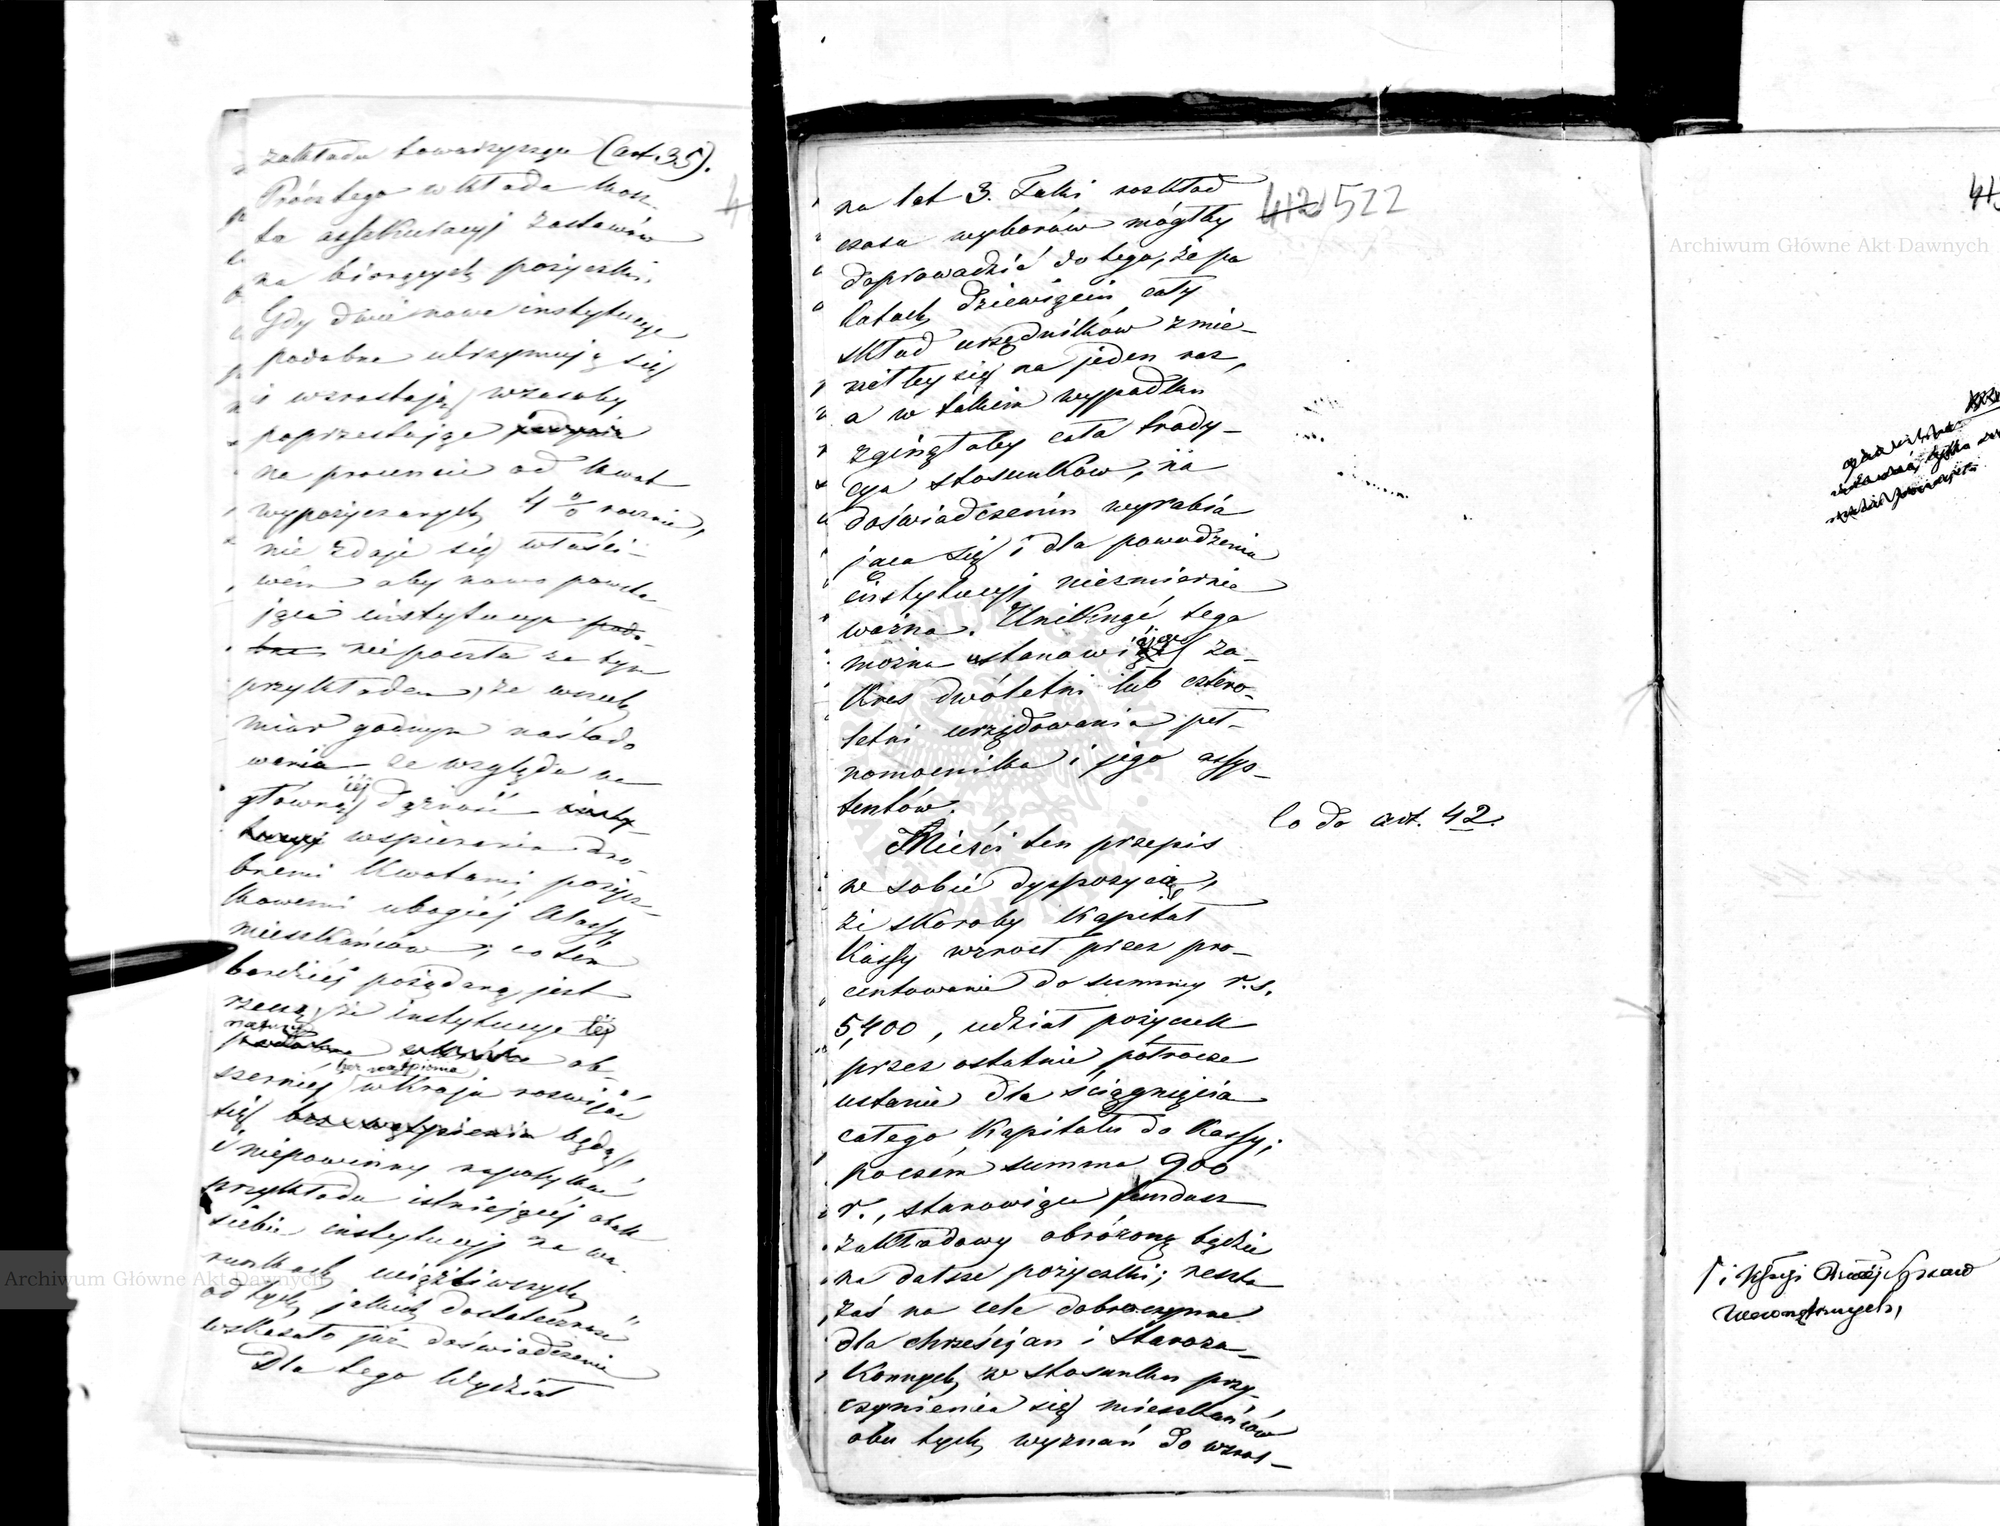 zakładu towarzyszyu (art. 35).
Prócz tego wkłada kosz-
ta assekuracyj zastawów
na biorących pożyczki.
Gdy dwie nowe instytucye
podobne utrzymują się
i wzrastają w zasoby
poprzestając jedynie
na procencie od kwot
wypożyczanych 4 % rocznie,
nie zdaje się właści-
wém aby nowo powsta-
jąca instytucya pod-
bna nie poszła za tym
przykładem, ze wszech
miar godnym naślado
wania ze względu na
główną jéj dążność insty-
tucyj wspierania dro-
bnemi kwotami pożycz-
kowemi ubogiéj klassy
mieszkańców, co tém
bardziéj pożądaną jest
rzeczą, że instytucye téj
natury
podobne ob-
szerniéj bez wątpienia w kraju rozwijać
się bez wątpienia będą,
i niepowinny napotykać
przykładu istniejącéj obok
siebie instytucyj na wa-
runkach uciążliwszych
od tych, jakich dostateczność
wskazało już doświadczenie
Dla tego Wydział
412 522
na lat 3. Taki rozkład
czasu wyborów mógłby
doprowadzić do tego, że po
latach dziewięciu cały
skład urzędników zmie-
niłby się na jeden raz,
a w takim wypadku
zginęłaby cała trady-
cya stosunków, na
doświadczeniu wyrabia
jaca się i dla powodzenia
instytucyj niezmiernie
ważna. Uniknąć tego
można ustanowiając za-
kres dwóletni lub cztero-
letni urzędowania peł-
nomocnika i jego assys-
tentów.
Co do art. 42.
Mieści ten przepis
w sobie dyspozycią,
że skoroby kapitał
Kassy wzrost przez pro-
centowanie do summy r. s.
5,400, udział pożyczek
przez ostatnie półrocze
ustanie dla ściągnięcia
całego kapitału do Kassy;
poczém summa 900
r., stanowiąca fundusz
zakładowy obróconą będzie
na dalsze pożyczki; reszta
zaś na cele dobroczynne
dla chrześcijan i Staroza-
konnych, w stosunku przy-
czynienia się mieszkańców
obu tych wyznań do wzros-
413
i Kommissyi Rządowéj Spraw
Wewnętrznych,
Archiwum Główne Akt Dawnych
Archiwum Główne Akt Dawnych